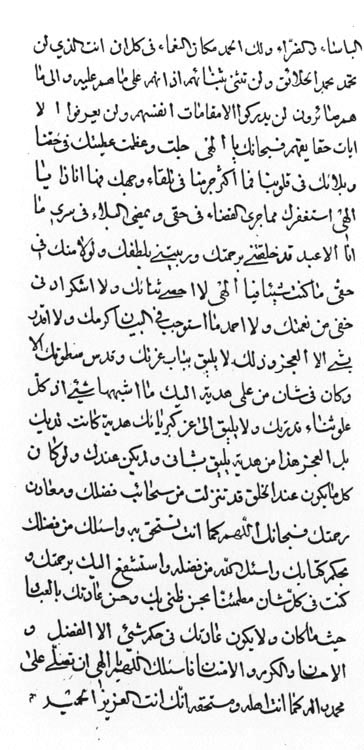 البأساء والضراء ولك الحمد مكان النعماء فى كل ان انت الذى لن
تحمد بحمد الخلائق ولن تثنى بثنائهم اذ انهم على ما هم عليه والى ما
هم صائرون لن يدركوا الا مقامات انفسهم ولن يعرفوا الا
ايات حقايقهم فسبحانك يا الهى جلت وعظمت عطيتك فى حقنا
وبلائك فى قلوبنا فما اكثر جرمنا فى تلقاء وجهك فها انا ذا يا
الهى استغفرك مما جرى القضاء فى حقى ويمضى البلاء فى سرى ما
انا الا عبد قد خلقتنى برحمتك وربيتنى بلطفك ولولا منك فى
حقى ما كنت شيئا فيا الهى لا احصى ثنائك ولا اشكر اد نى
حقى من نعمتك ولا احمد ما استوجب فى البيان كرمك ولا اقدر
بشئ الا العجز وذلك لا يليق بباب عزتك وقدس سطوتك الا
وكان فى شان من على هدية اليك ما اشبهها بشئ اذ كل
علو ثناء قدرتك ولا يليق الى عز كبريائك هدية كانت لديك
بل العجز هذا من هدية يليق بشانى ولم يكن عندك ولو كان
كل ما يكون عند الخلق قد نزلت من سحائب فضلك ومعادن
رحمتك فسبحانك اللهم كما انت تستحق به واسئلك من فضلك
محكم كتابك واسئل الله من فضله واستشفع اليك برحمتك و
كنت فى كل شان مطمئنا بحسن ظنى بك وحسن عادتك بالعباد
حيث ما كان ولا يكون عادتك فى حكم شئ الا الفضل و
الاحسان والكرم والامتنان فاسئلك اللهم يا الهى ان تصلى على
محمد واله كما انت اهله ومستحقه انك انت العزيز الحميد